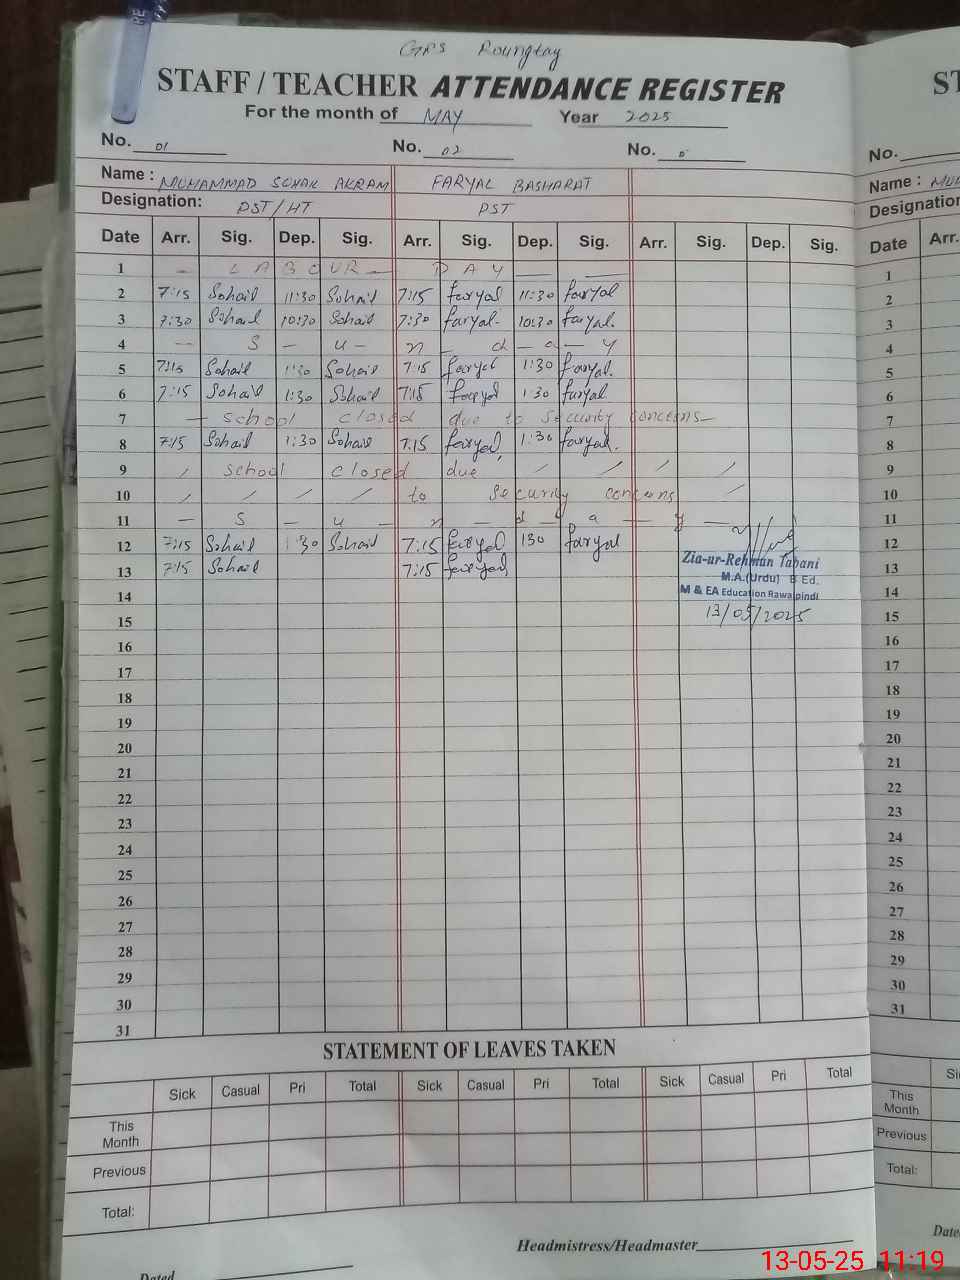 GPS Roungtay
STAFF / TEACHER ATTENDANCE REGISTER
For the month of MAY Year 2025
No. 01 No. 02 No. 0
Name : MUHAMMAD SOHAIL AKRAM FARYAL BASHARAT
Designation: PST/HT PST
Date Arr. Sig. Dep. Sig. Arr. Sig. Dep. Sig. Arr. Sig. Dep. Sig.
1 — LABOUR — DAY — —
2 7:15 Sohail 11:30 Sohail 7:15 faryal 11:30 faryal
3 7:30 Sohail 10:30 Sohail 7:30 faryal. 10:30 faryal.
4 — S — u — n — d — a — y
5 7:15 Sohail 1:30 Sohail 7:15 faryal 1:30 faryal.
6 7:15 Sohail 1:30 Sohail 7:15 faryal 1:30 faryal.
7 — school closed due to security concerns —
8 7:15 Sohail 1:30 Sohail 7:15 faryal, 1:30 faryal.
9 / school closed due / / / /
10 / / / / to security concerns /
11 — S — u — n — d — a — y —
12 7:15 Sohail 1:30 Sohail 7:15 faryal 130 faryal
13 7:15 Sohail 7:15 faryal,
Zia-ur-Rehman Tabani
M.A.(Urdu) B Ed.
M & EA Education Rawalpindi
13/05/2025
14
15
16
17
18
19
20
21
22
23
24
25
26
27
28
29
30
31
STATEMENT OF LEAVES TAKEN
Sick Casual Pri Total Sick Casual Pri Total Sick Casual Pri Total
This
Month
Previous
Total:
Headmistress/Headmaster
Dated
ST
No.
Name : MU
Designation
Date Arr.
1
2
3
4
5
6
7
8
9
10
11
12
13
14
15
16
17
18
19
20
21
22
23
24
25
26
27
28
29
30
31
This
Month
Previous
Total:
13-05-25 11:19